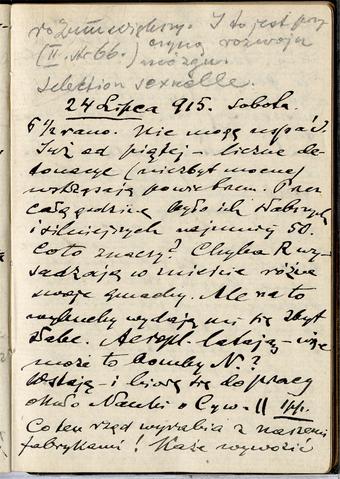 rozum większy. I to jest przy
(II. str 66.) czyną rozwoju
mózgu.
Selection sexuelle.
24 Lipca 915. Sobota.
6 1/2 rano. Nie mogę uspać.
Już od piątej – liczne de-
tonacye (niezbyt mocne)
wstrząsają powietrzem. Przez
całą godzinę było ich słabszych
i silniejszych najmniej 50.
Co to znaczy? Chyba R wy-
sadzają w mieście różne
swoje gmachy. Ale na to
wybuchy wydają mi się zbyt
słabe. Aeropl. latają – więc
może to bomby N.?
Wstaję – i biorę się do pracy
około Nauki o Cyw. II
Co ten rząd wyrabia z naszemi
fabrykami! Każe wywozić